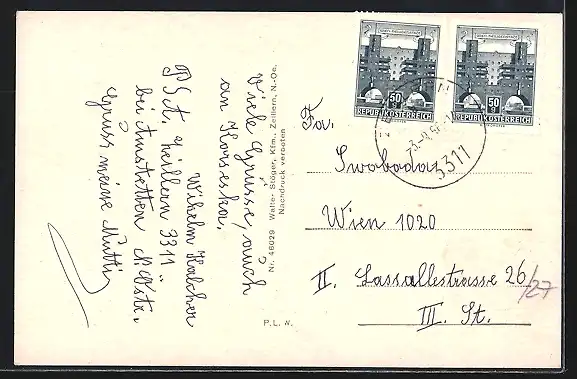 Viele Grüsse, auch
an Koreska.
Wilhelm Kalcher
PSt. Zeillern 3311
bei Amstetten N.Östr.
Gruss meine Mutti
Nr. 46029 Walter Stöger, Kfm., Zeillern, N.-Oe.
Nachdruck verboten
P. L. W.
50
g
REPUBLIK ÖSTERREICH
50
g
REPUBLIK ÖSTERREICH
3311
Fa.
Swoboda
Wien 1020
II. Lassallestrasse 26/27
III. St.